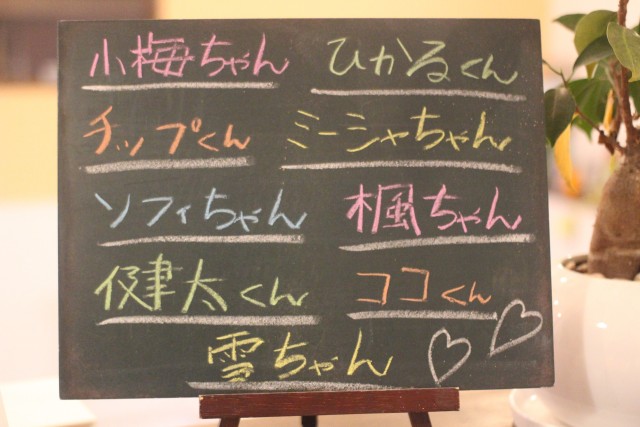 小梅ちゃん ひかるくん
チップくん ミーシャちゃん
ソフィちゃん 楓ちゃん
健太くん ココくん
雪ちゃん